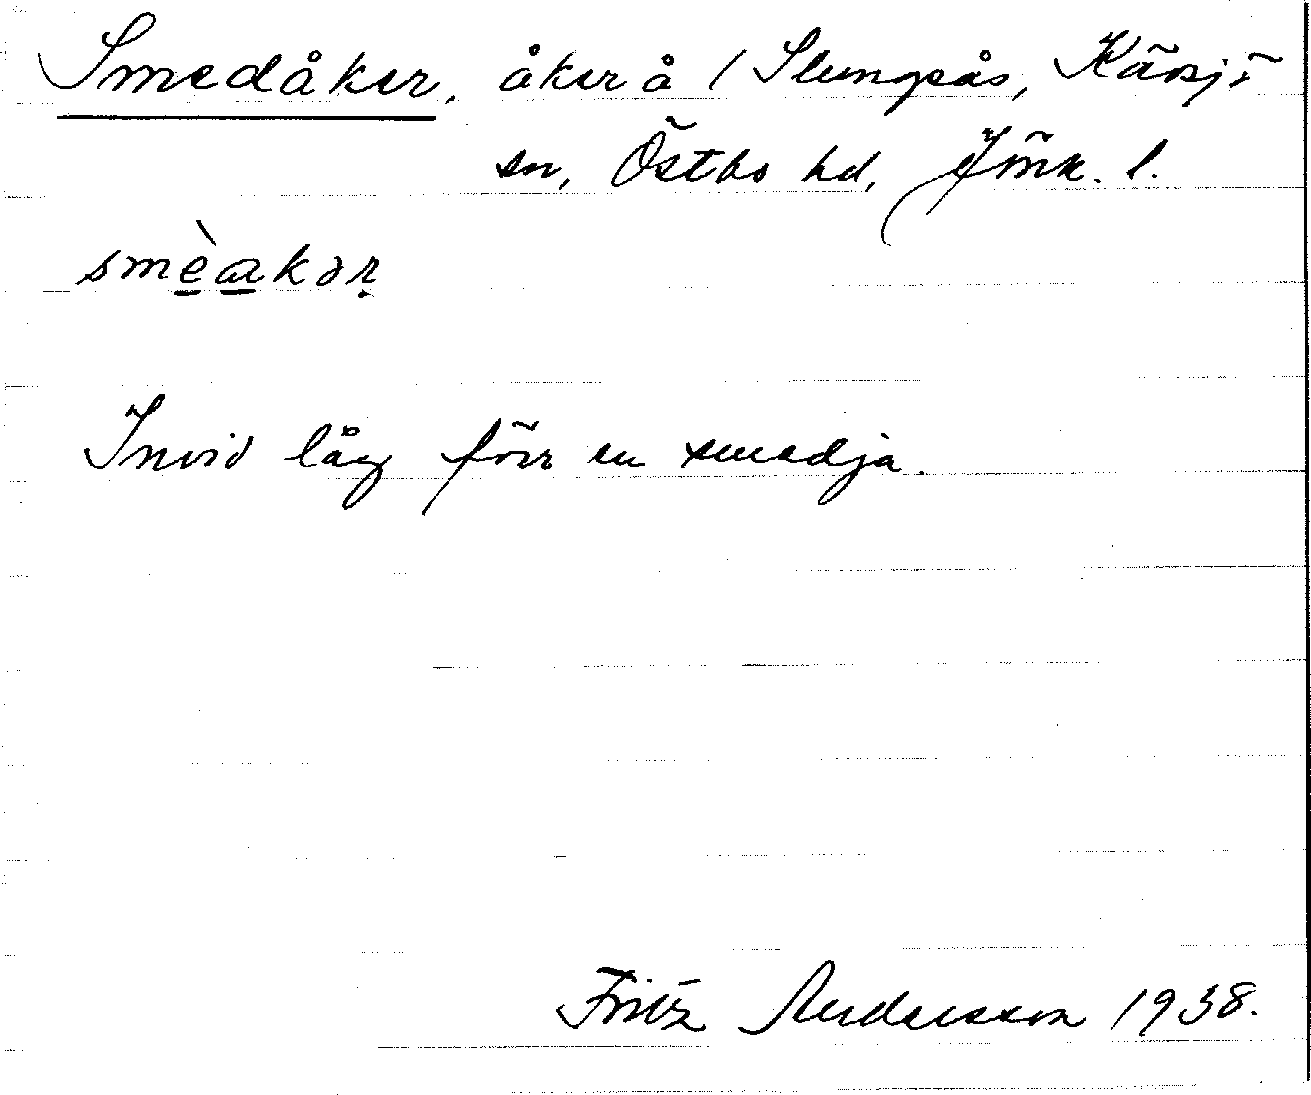 Smedåker, åker å 1 Slungsås, Kävsjö
sn, Östbo hd, Jönk. l.
smèakər
Invid låg förr en smedja.
Fritz Andersson 1938.